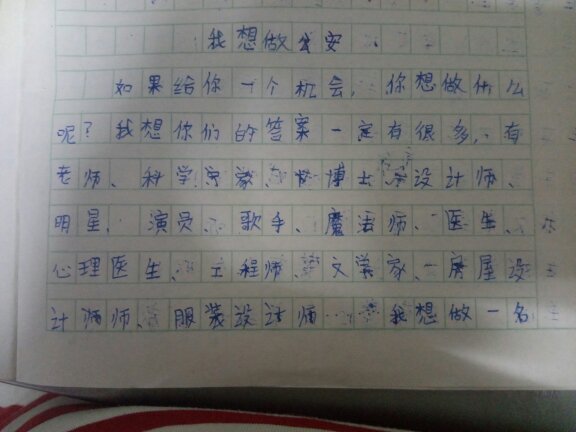 我想做公安
如果给你一个机会,你想做什么
呢?我想你们的答案一定有很多,有
老师、科学家、博士、设计师、
明星、演员、歌手、魔法师、医生、
心理医生、工程师、文学家、房屋设
计师、服装设计师……我想做一名